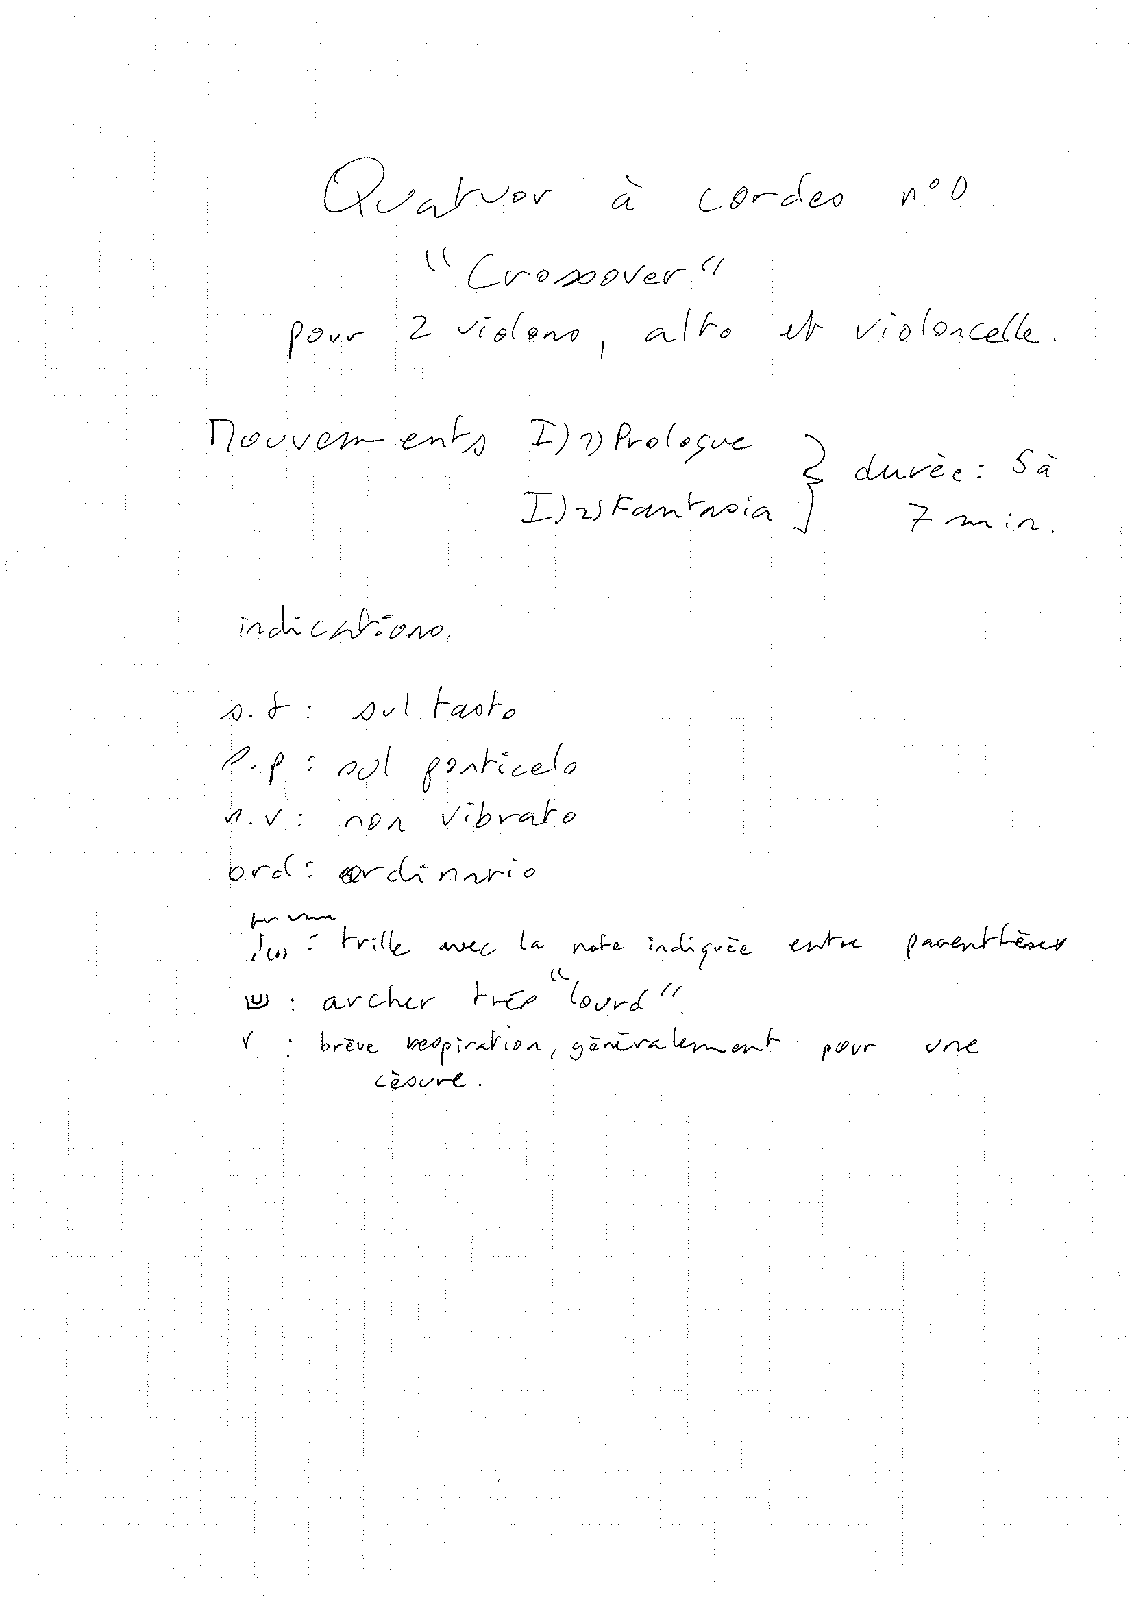 Quatuor à cordes n°0
"Crossover"
pour 2 violons, alto et violoncelle.
Mouvements I) 1) Prologue
I) 2) Fantasia
durée: 5 à
7 min.
indications.
s.t : sul tasto
p.p : sul ponticelo
n.v : non vibrato
ord : ordinario
: trille avec la note indiquée entre parenthèses
: archer très "lourd"
v : brève respiration, généralement pour une
césure.